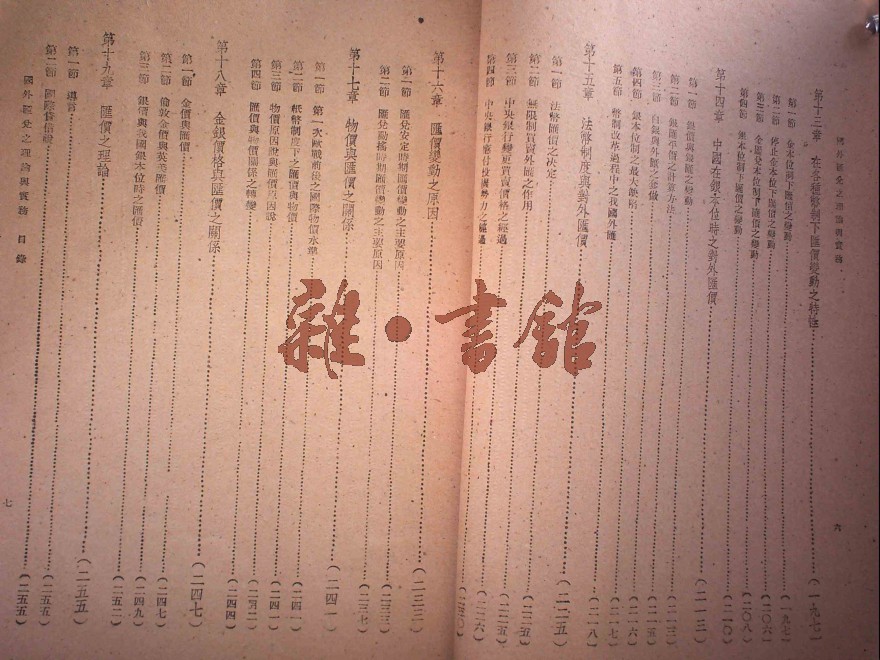 國外匯兌之理論與實務
六
第十三章 在各種幣制下匯價變動之特性 (一九七)
第一節 金本位制下匯價之變動 (一九七)
第二節 停止金本位制下匯價之變動
第三節 金匯兌本位制下匯價之變動 (二〇八)
第四節 銀本位制下匯價之變動 (二一〇)
第十四章 中國在銀本位時之對外匯價 (二一三)
第一節 銀價與銀匯之變動 (二一三)
第二節 銀匯平價之計算方法 (二一五)
第三節 白銀與外匯之
第四節 銀本位制之最大缺
第五節 幣制改革過程中之我國外匯
第十五章 法幣制度與對外匯價 (二二五)
第一節 法幣匯價之決定
第二節 無限制買賣外匯之作用 (二二五)
第三節 中央銀行變更買賣價格之經過 (二二五)
第四節 中央銀行應付投機勢力之經過
第十六章 匯價變動之原因 (二三三)
第一節 匯兌安定時期匯價變動之主要原因 (二三三)
第二節 匯兌動搖時期匯價變動之主要原因 (二三七)
第十七章 物價與匯價之關係 (二四一)
第一節 第一次歐戰前後之國際物價水準
第二節 紙幣制度下之匯價與物價 (二四一)
第三節 物價原因說與匯價原因說
第四節 匯價與物價關係之轉變 (二四四)
第十八章 金銀價格與匯價之關係 (二四七)
第一節 金價與匯價
第二節 倫敦金價與英美匯價 (二四七)
第三節 銀價與我國銀本位時之匯價 (二四九)
第十九章 匯價之理論 (二五五)
第一節 導言
第二節 國際借貸說 (二五五)
國外匯兌之理論與實務 目錄
七
雜·書館